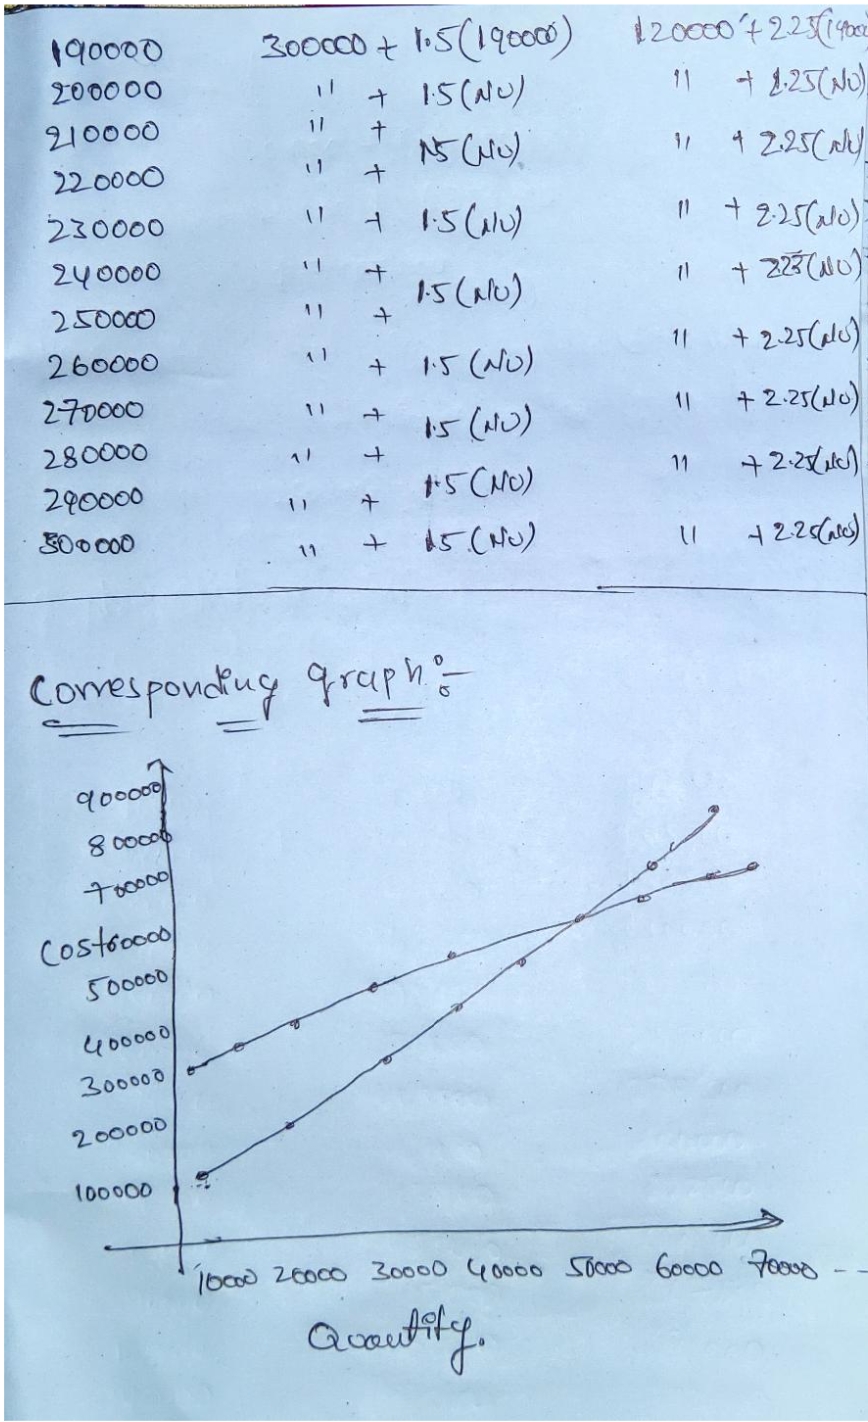 190000 300000 + 1.5(190000) 120000 + 2.25(190000
200000 " + 1.5(NU) " + 2.25(NU)
210000 " +
220000 " + 1.5(NU) " + 2.25(NU)
230000 " + 1.5(NU) " + 2.25(NU)
240000 " + " + 225(NU)
250000 " + 1.5(NU)
260000 " + 1.5(NU) " + 2.25(NU)
270000 " + 1.5(NU) " + 2.25(NU)
280000 " + " + 2.25(NU)
290000 " + 1.5(NU)
300000 " + 15(NU) " + 2.25(NU)
Corresponding graph:-
900000
800000
700000
Cost 60000
500000
400000
300000
200000
100000
10000 20000 30000 40000 50000 60000 70000 --
Quantity.